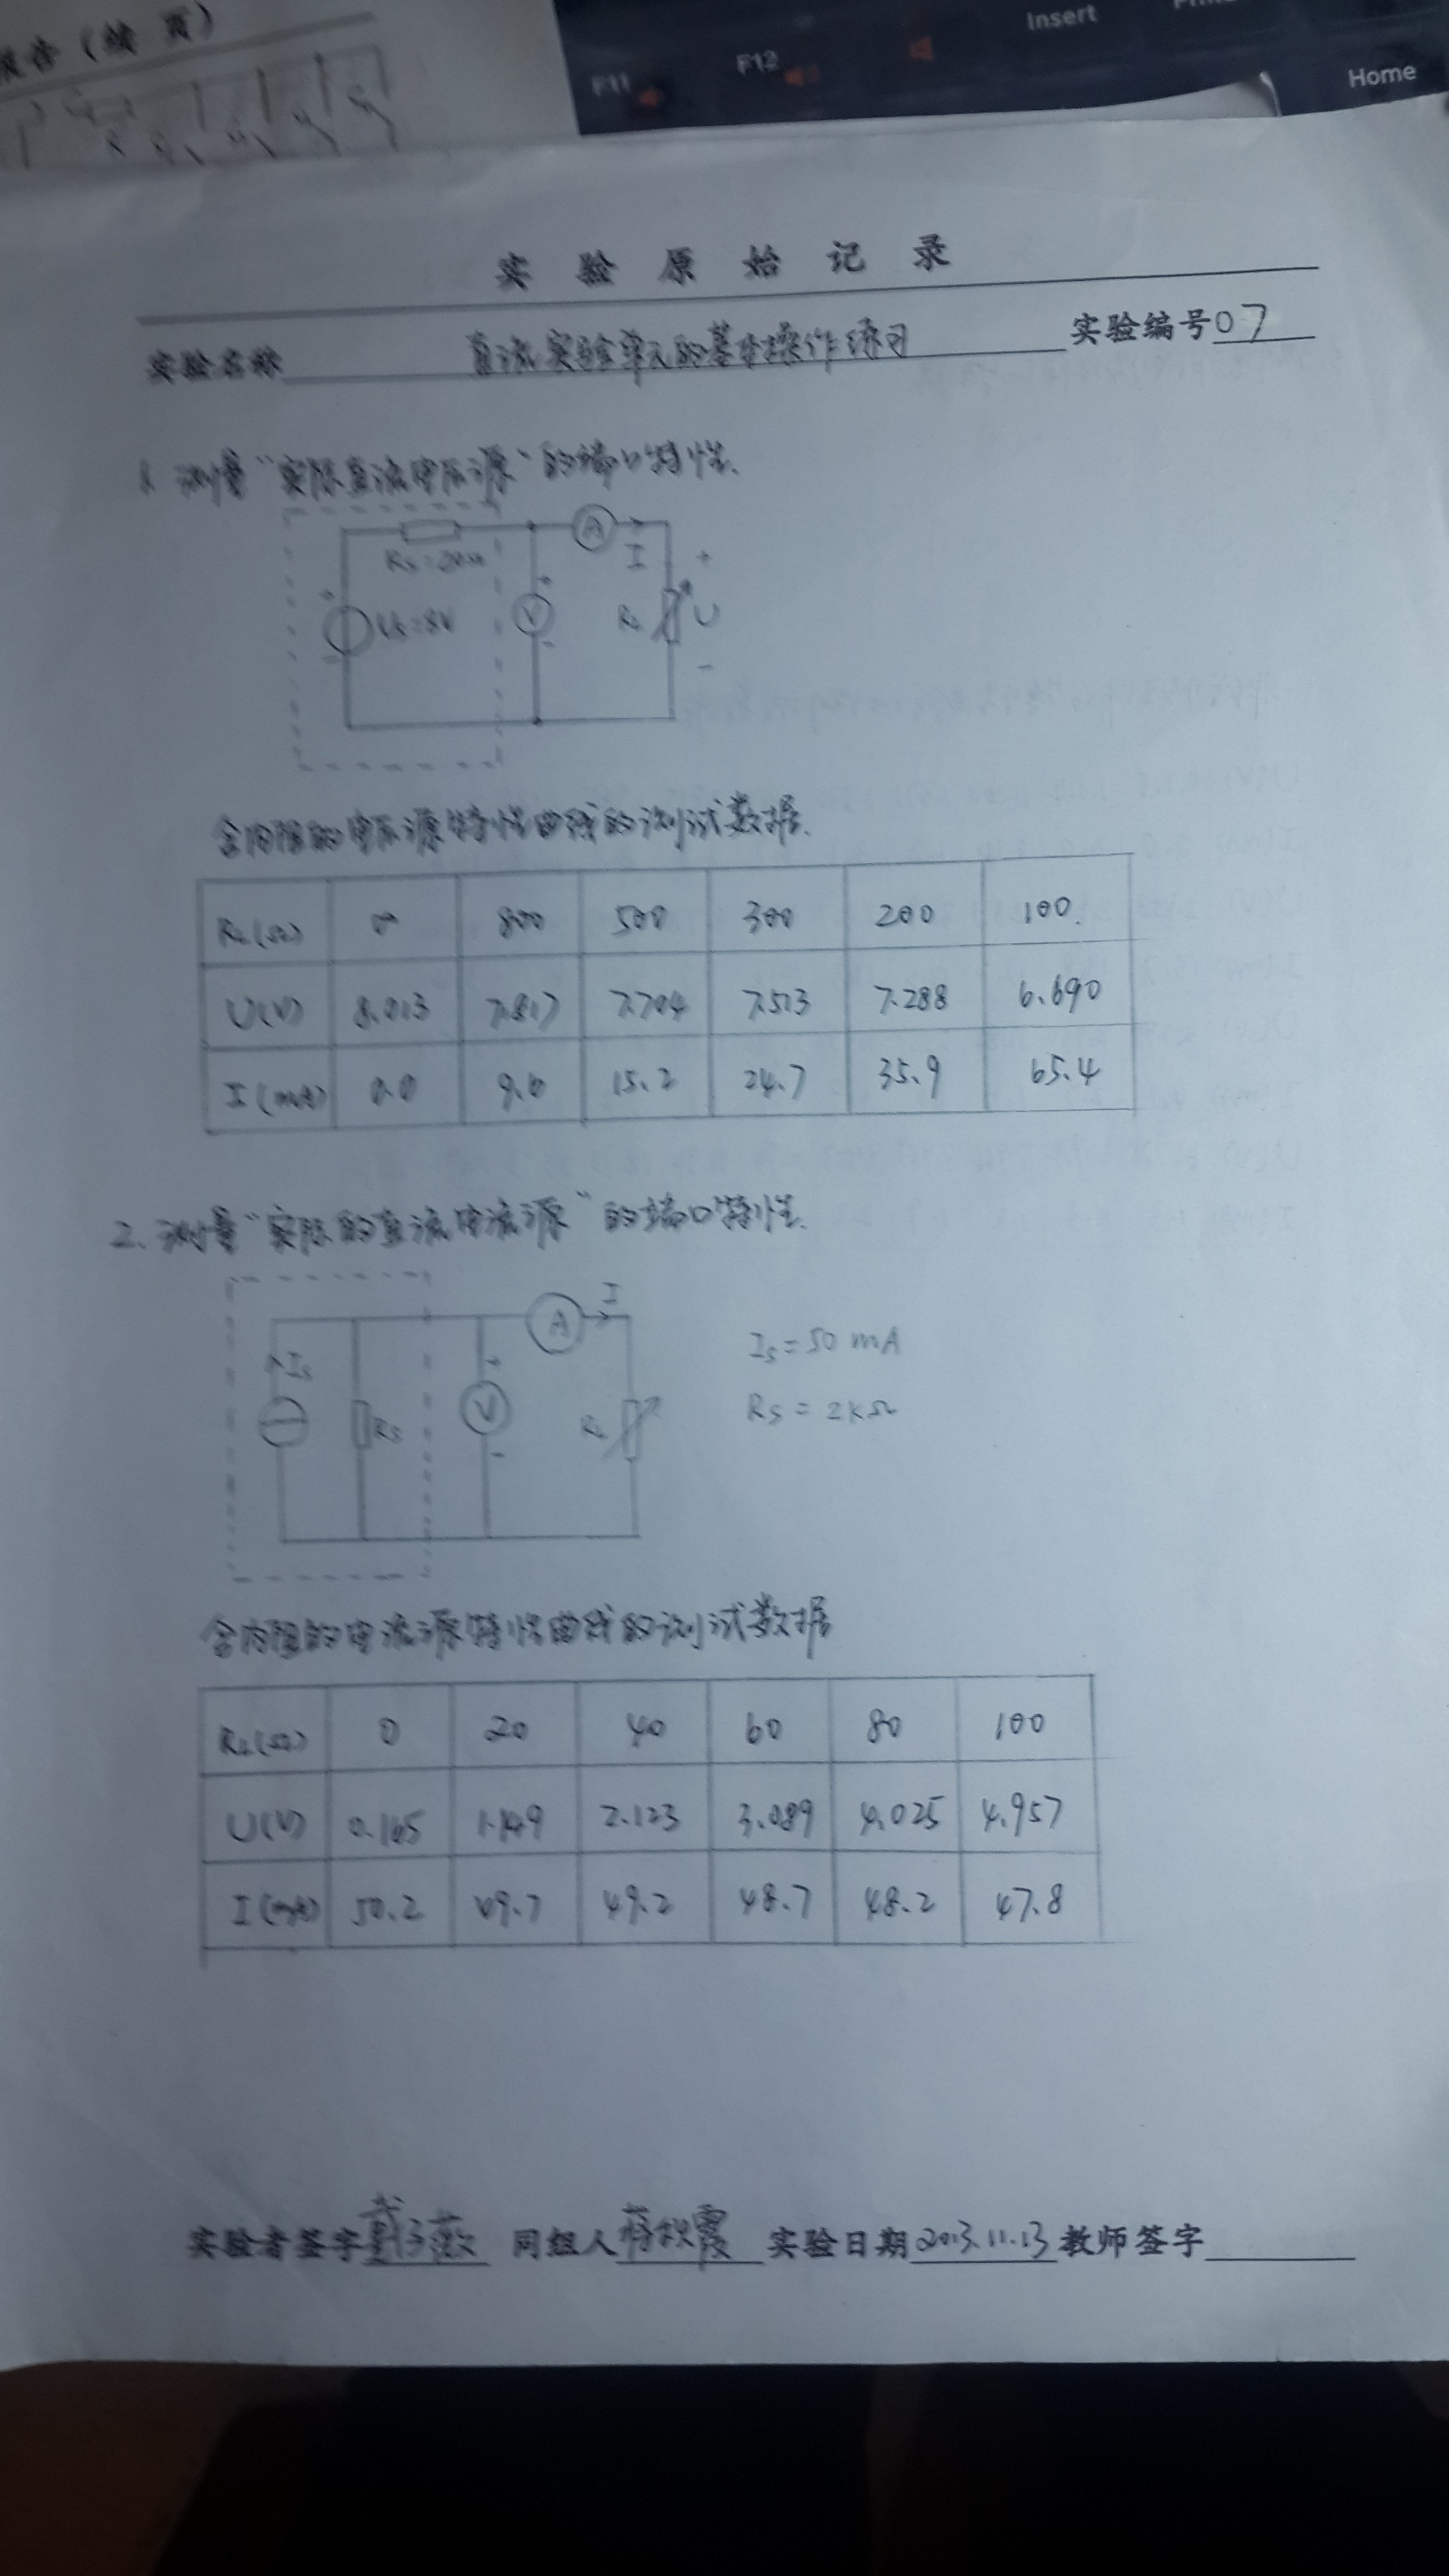 报告（续页）
F11
F12
Insert
Home
实验原始记录
实验名称 直流实验单元的基本操作练习 实验编号07
1. 测量“实际直流电压源”的端口特性.
A
I
Rs=20Ω
+
+
+
Us=8V
V
RL
U
-
-
-
含内阻的电压源特性曲线的测试数据.
RL(Ω) ∞ 800 500 300 200 100
U(V) 8.013 7.817 7.704 7.513 7.288 6.690
I(mA) 0.0 9.6 15.2 24.7 35.9 65.4
2. 测量“实际的直流电流源”的端口特性.
A
I
Is
+
Is=50 mA
Rs
V
RL
Rs=2kΩ
-
含内阻的电流源特性曲线的测试数据
RL(Ω) 0 20 40 60 80 100
U(V) 0.165 1.149 2.123 3.089 4.025 4.957
I(mA) 50.2 49.7 49.2 48.7 48.2 47.8
实验者签字 戴子薇 同组人 蒋秋霞 实验日期 2013.11.13 教师签字